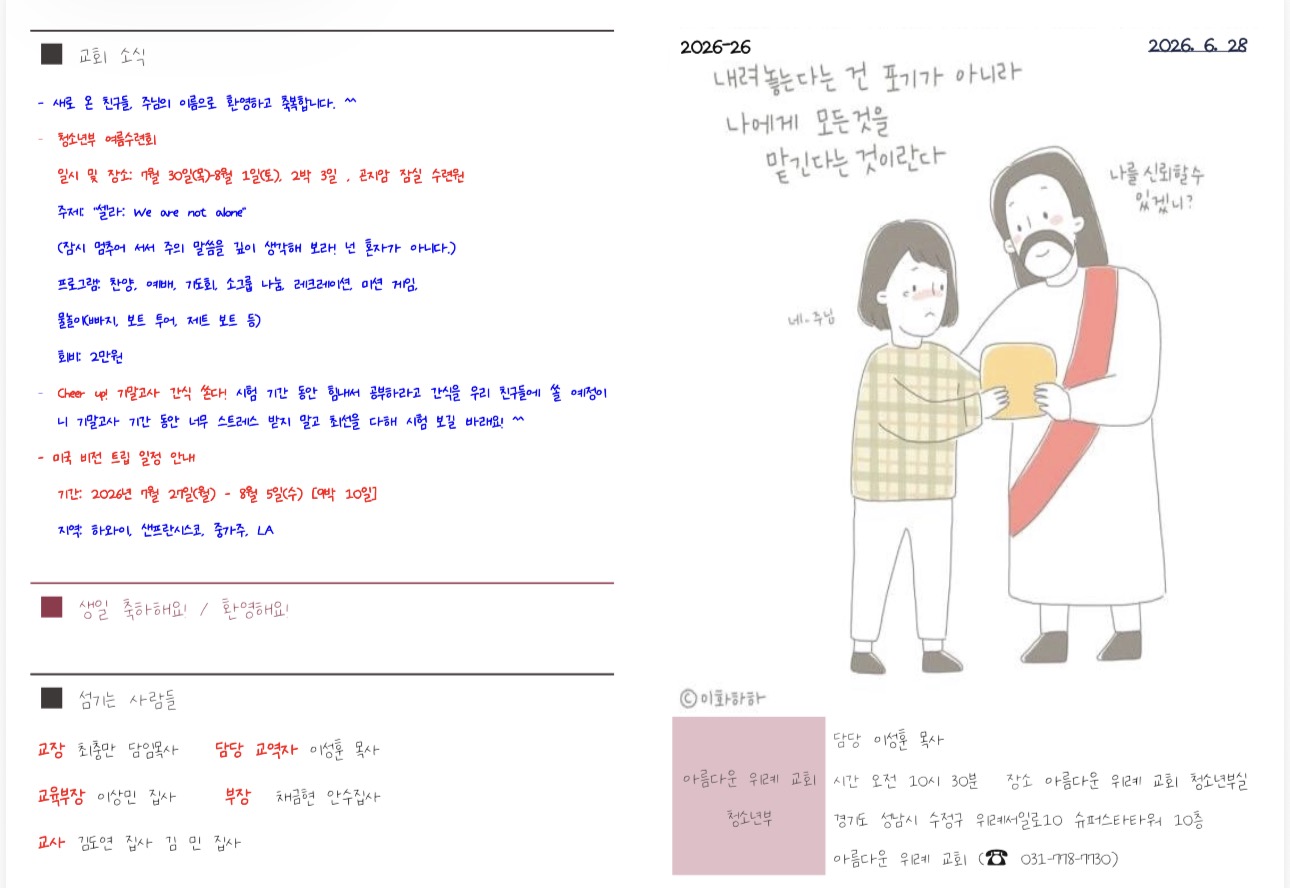 교회 소식
- 새로 온 친구들, 주님의 이름으로 환영하고 축복합니다. ^^
- 청소년부 여름수련회
일시 및 장소: 7월 30일(목)-8월 1일(토), 2박 3일 , 곤지암 잠실 수련원
주제: "셀라: We are not alone"
(잠시 멈추어 서서 주의 말씀을 깊이 생각해 보라! 넌 혼자가 아니다.)
프로그램: 찬양, 예배, 기도회, 소그룹 나눔, 레크레이션, 미션 게임,
물놀이(빠지, 보트 투어, 제트 보트 등)
회비: 2만원
- Cheer up! 기말고사 간식 쏜다! 시험 기간 동안 힘내서 공부하라고 간식을 우리 친구들에 쏠 예정이
니 기말고사 기간 동안 너무 스트레스 받지 말고 최선을 다해 시험 보길 바래요! ^^
- 미국 비전 트립 일정 안내
기간: 2026년 7월 27일(월) - 8월 5일(수) [9박 10일]
지역: 하와이, 샌프란시스코, 중가주, LA
생일 축하해요! / 환영해요!
섬기는 사람들
교장 최종만 담임목사 담당 교역자 이성훈 목사
교육부장 이상민 집사 부장 채금현 안수집사
교사 김도연 집사 김 민 집사
2026-26
2026. 6. 28
내려놓는다는 건 포기가 아니라
나에게 모든것을
맡긴다는 것이란다
나를 신뢰할 수
있겠니?
네- 주님
©이화하하
아름다운 위례 교회
청소년부
담당 이성훈 목사
시간 오전 10시 30분 장소 아름다운 위례 교회 청소년부실
경기도 성남시 수정구 위례서일로10 슈퍼스타타워 10층
아름다운 위례 교회 (☎ 031-778-7730)